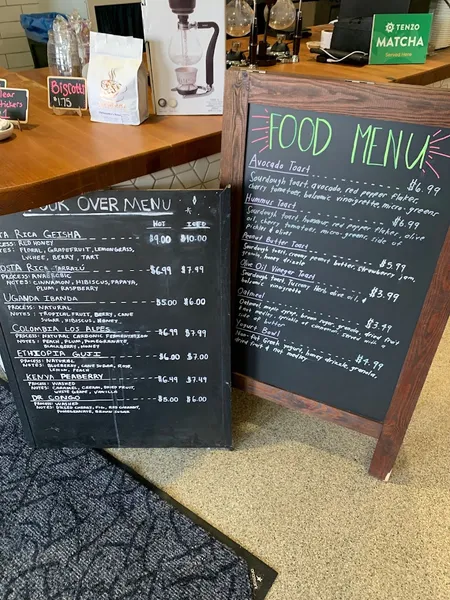 TENZO
MATCHA
Served Here
Biscotti
$1.75
Stickers
OUR OVER MENU
HOT ICED
TA RICA GEISHA $9.00 $10.00
CESS: RED HONEY
NOTES: FLORAL, GRAPEFRUIT, LEMONGRASS,
LYCHEE, BERRY, TART
OSTA RICA TARRAZU $6.99 $7.99
PROCESS: ANAEROBIC
NOTES: CINNAMON, HIBISCUS, PAPAYA,
PLUM, RASPBERRY
UGANDA IBANDA $5.00 $6.00
PROCESS: NATURAL
NOTES: TROPICAL FRUIT, BERRY, CANE
SUGAR, HIBISCUS, HONEY
COLOMBIA LOS ALPES $6.99 $7.99
PROCESS: NATURAL CARBONIC FERMENTATION
NOTES: PEACH, PLUM, POMEGRANATE,
BLACKBERRY, HONEY
ETHIOPIA GUJI $6.00 $7.00
PROCESS: NATURAL
NOTES: BLUEBERRY, CANE SUGAR, ROSE,
LEMON, PEACH
KENYA PEABERRY $6.49 $7.49
PROCESS: WASHED
NOTES: CARAMEL, CREAM, DRIED FRUIT,
WHITE GRAPE, VANILLA
DR CONGO $5.00 $6.00
PROCESS: WASHED
NOTES: DRIED CHERRY, FIG, RED CURRANT,
POMEGRANATE, BROWN SUGAR
FOOD MENU
Avocado Toast $6.99
Sourdough toast, avocado, red pepper flakes,
cherry tomatoes, balsamic vinaigrette, micro greens
Hummus Toast $6.99
Sourdough toast, hummus, red pepper flakes, olive
oil, cherry tomatoes, micro-greens, side of
pickles & olives
Peanut Butter Toast $5.99
Sourdough toast, creamy peanut butter, strawberry jam,
granola, honey drizzle
Olive Oil Vinegar Toast $3.99
Sourdough toast, Tuscany Herb olive oil, &
balsamic vinaigrette
Oatmeal $3.49
Oatmeal, maple syrup, brown sugar, granola, dried fruit
Yogurt Bowl $4.99
fat Greek yogurt, honey drizzle, granola,
dried fruit & nut medley